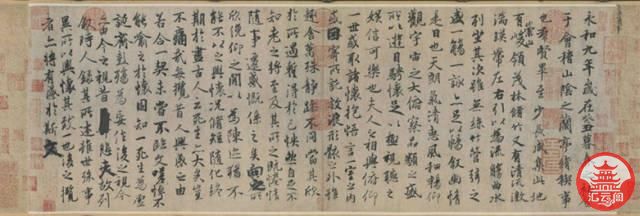 永和九年歲在癸丑暮春之初會
于會稽山陰之蘭亭脩禊事
也羣賢畢至少長咸集此地
有崇山峻領茂林脩竹又有清流激
湍暎帶左右引以為流觴曲水
列坐其次雖無絲竹管弦之
盛一觴一詠亦足以暢敘幽情
是日也天朗氣清惠風和暢仰
觀宇宙之大俯察品類之盛
所以遊目騁懷足以極視聽之
娛信可樂也夫人之相與俯仰
一世或取諸懷抱悟言一室之內
或因寄所託放浪形骸之外雖
趣舍萬殊靜躁不同當其欣
於所遇蹔得於己怏然自足不
知老之將至及其所之既惓情
隨事遷感慨係之矣向之所
欣俛仰之閒以為陳迹猶不
能不以之興懷況脩短隨化終
期於盡古人云死生亦大矣豈
不痛哉每攬昔人興感之由
若合一契未嘗不臨文嗟悼不
能喻之於懷固知一死生為虛
誕齊彭殤為妄作後之視今
亦由今之視昔悲夫故列
敘時人錄其所述雖世殊事
異所以興懷其致一也後之攬
者亦將有感於斯文
汇云阁